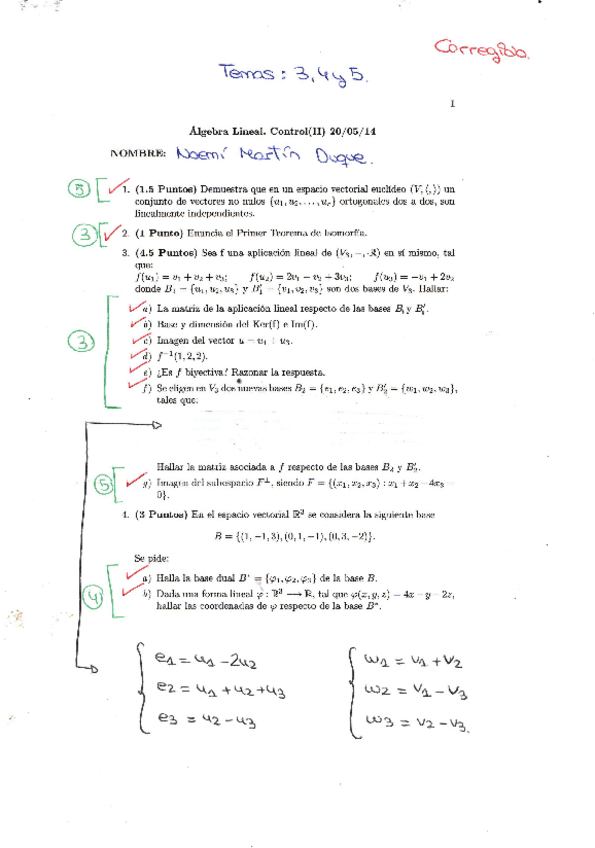 Corregido.
Temas: 3, 4 y 5.
1
Álgebra Lineal. Control(II) 20/05/14
NOMBRE: Noemí Martín Duque.
5 1. (1.5 Puntos) Demuestra que en un espacio vectorial euclídeo (V, ⟨,⟩) un
conjunto de vectores no nulos {u₁, u₂, ..., uᵣ} ortogonales dos a dos, son
linealmente independientes.
3 2. (1 Punto) Enuncia el Primer Teorema de Isomorfía.
3. (4.5 Puntos) Sea f una aplicación lineal de (V₃, +, ·ℝ) en sí mismo, tal
que:
f(u₁) = v₁ + v₂ + v₃; f(u₂) = 2v₁ − v₂ + 3v₃; f(u₃) = −v₁ + 2v₂
donde B₁ = {u₁, u₂, u₃} y B₁′ = {v₁, v₂, v₃} son dos bases de V₃. Hallar:
a) La matriz de la aplicación lineal respecto de las bases B₁ y B₁′.
b) Base y dimensión del Ker(f) e Im(f).
3 c) Imagen del vector u = u₁ + u₃.
d) f⁻¹(1, 2, 2).
e) ¿Es f biyectiva? Razonar la respuesta.
f) Se eligen en V₃ dos nuevas bases B₂ = {e₁, e₂, e₃} y B₂′ = {w₁, w₂, w₃},
tales que:
Hallar la matriz asociada a f respecto de las bases B₂ y B₂′.
5 g) Imagen del subespacio F⊥, siendo F = {(x₁, x₂, x₃) : x₁ + x₂ − 4x₃ =
0}.
4. (3 Puntos) En el espacio vectorial ℝ³ se considera la siguiente base
B = {(1, −1, 3), (0, 1, −1), (0, 3, −2)}.
Se pide:
a) Halla la base dual B* = {φ₁, φ₂, φ₃} de la base B.
4 b) Dada una forma lineal φ : ℝ³ ⟶ ℝ, tal que φ(x, y, z) = 4x − y − 2z,
hallar las coordenadas de φ respecto de la base B*.
e1 = u1 - 2u2 w1 = v1 + v2
e2 = u1 + u2 + u3 w2 = v1 - v3
e3 = u2 - u3 w3 = v2 - v3.